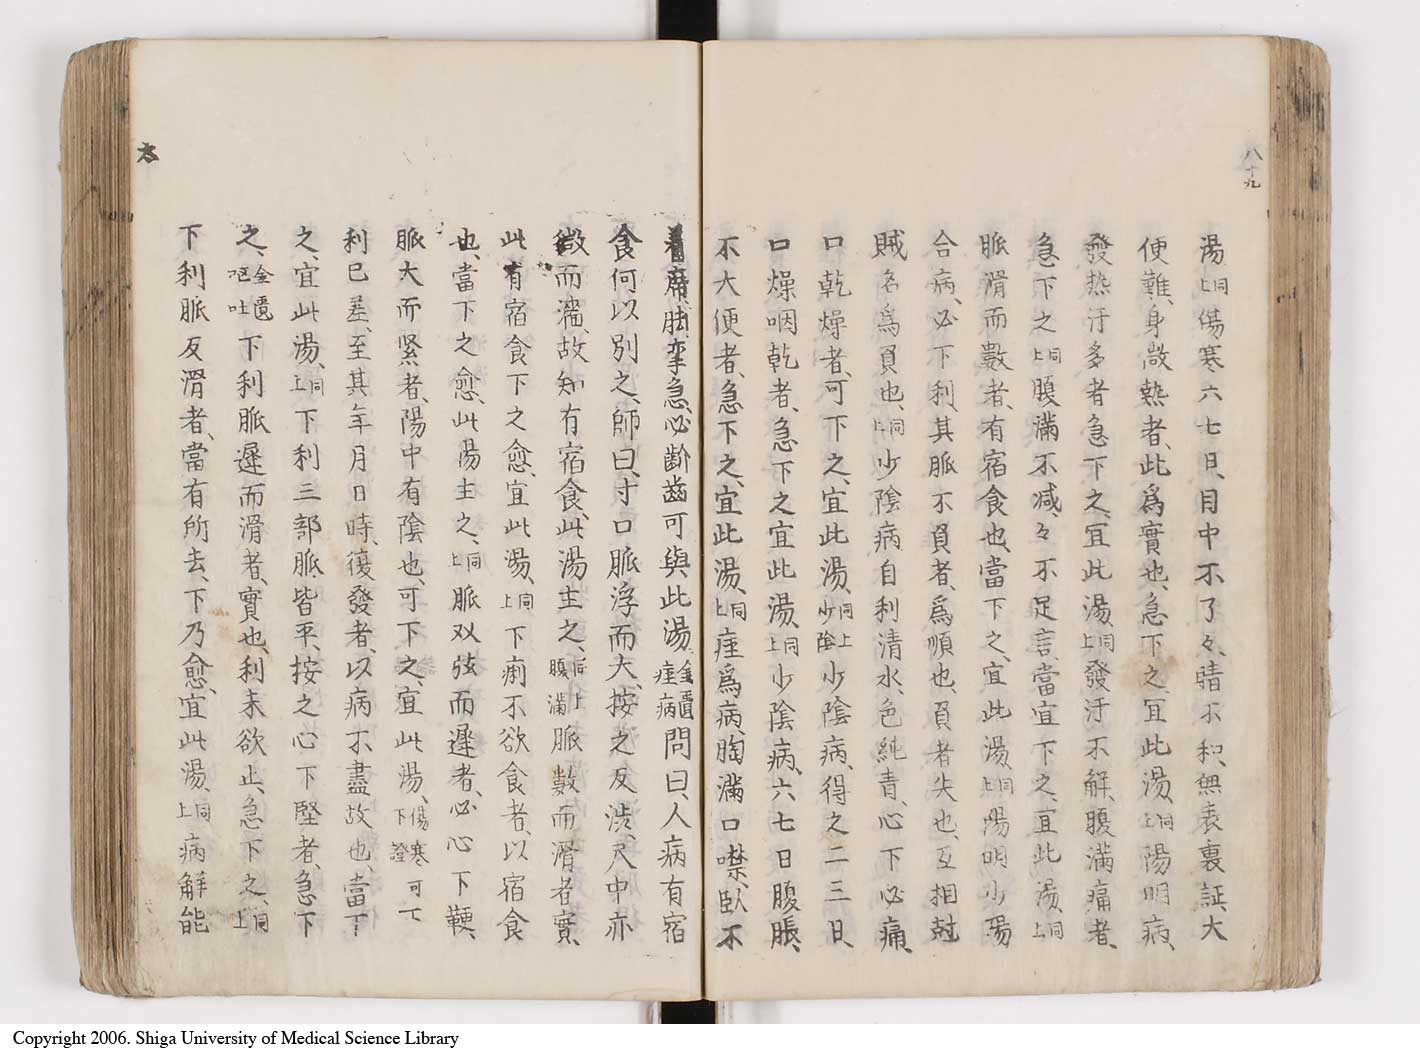 八十九
湯同上傷寒六七日、目中不了々、睛不和、無表裏証大
便難、身㣲熱者、此爲實也、急下之、冝此湯、同上陽明病、
發热汗多者急下之、冝此湯、同上發汗不解、腹滿痛者、
急下之同上腹滿不减、々不足言、當宜下之、宜此湯、同上
脈滑而數者、有宿食也、當下之、宜此湯、同上陽明少陽
合病、必下利、其脈不負者、爲順也、負者失也、互相尅
賊名爲負也、同上少陰病自利清水、色純青、心下必痛、
口乾燥者、可下之、宜此湯、同上少陰少陰病、得之二三日、
口燥咽乾者、急下之宜此湯、同上少陰病、六七日腹脹、
不大便者、急下之、宜此湯、同上痓爲病、胸滿口噤、臥不
着席、脚攣急、必齘齒可與此湯金匱痓病問曰、人病有宿
食何以別之、師曰、寸口脈浮而大、按之反渋、尺中亦
微而濇、故知有宿食、此湯主之、同上腹滿脈數而滑者實、
此有宿食下之愈、宜此湯、同上下痢不欲食者、以宿食
也、當下之愈、此湯主之、同上脈双弦而遲者、必心下鞕、
脈大而紧者、陽中有陰也、可下之、宜此湯、傷寒可下下證
利已差、至其年月日時、復發者、以病不盡故也、當下
之、宜此湯、同上下利三部脈皆平、按之心下堅者、急下
之、金匱嘔吐下利脈遲而滑者、實也、利未欲止、急下之、同上
下利脈反滑者、當有所去、下乃愈、宜此湯、同上病解能
太
Copyright 2006. Shiga University of Medical Science Library